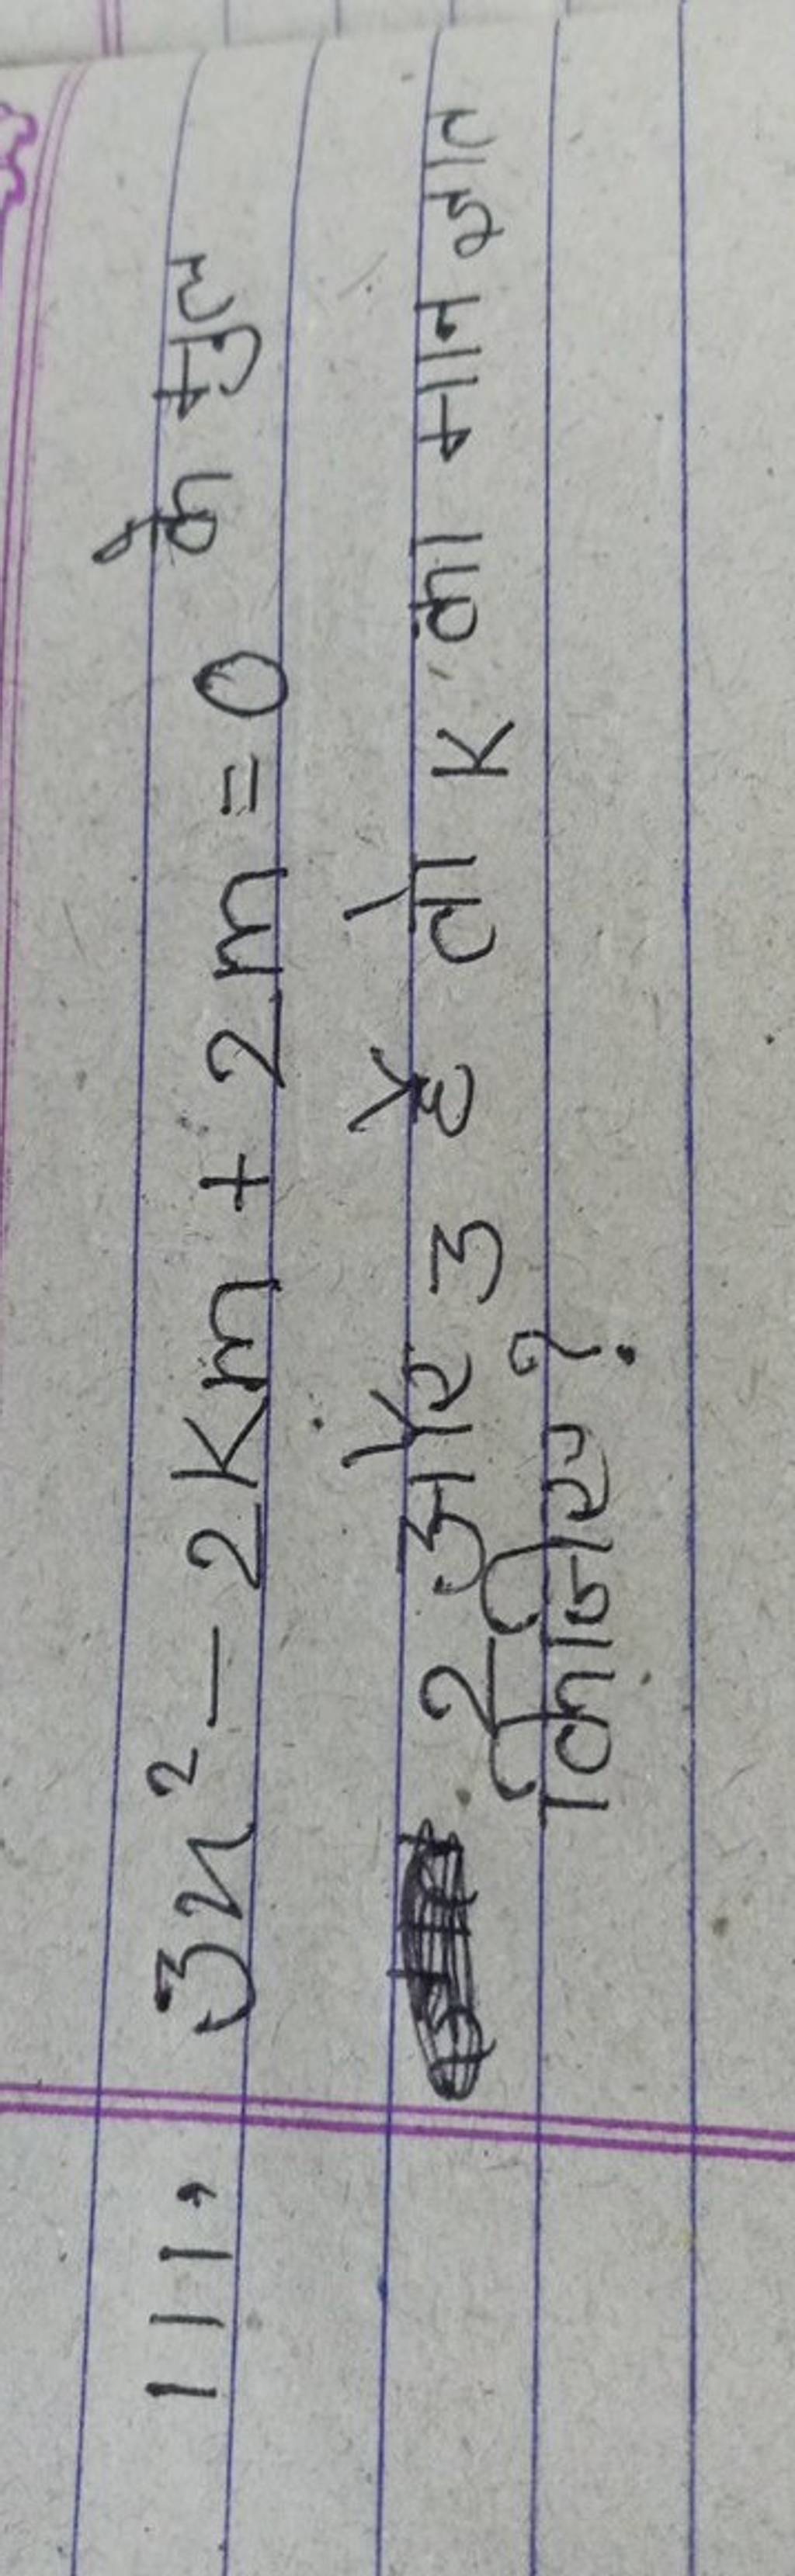 111, 3x² - 2Km + 2m = 0 के मुल
2 और 3 है तो K का मान ज्ञात
किजिए ?